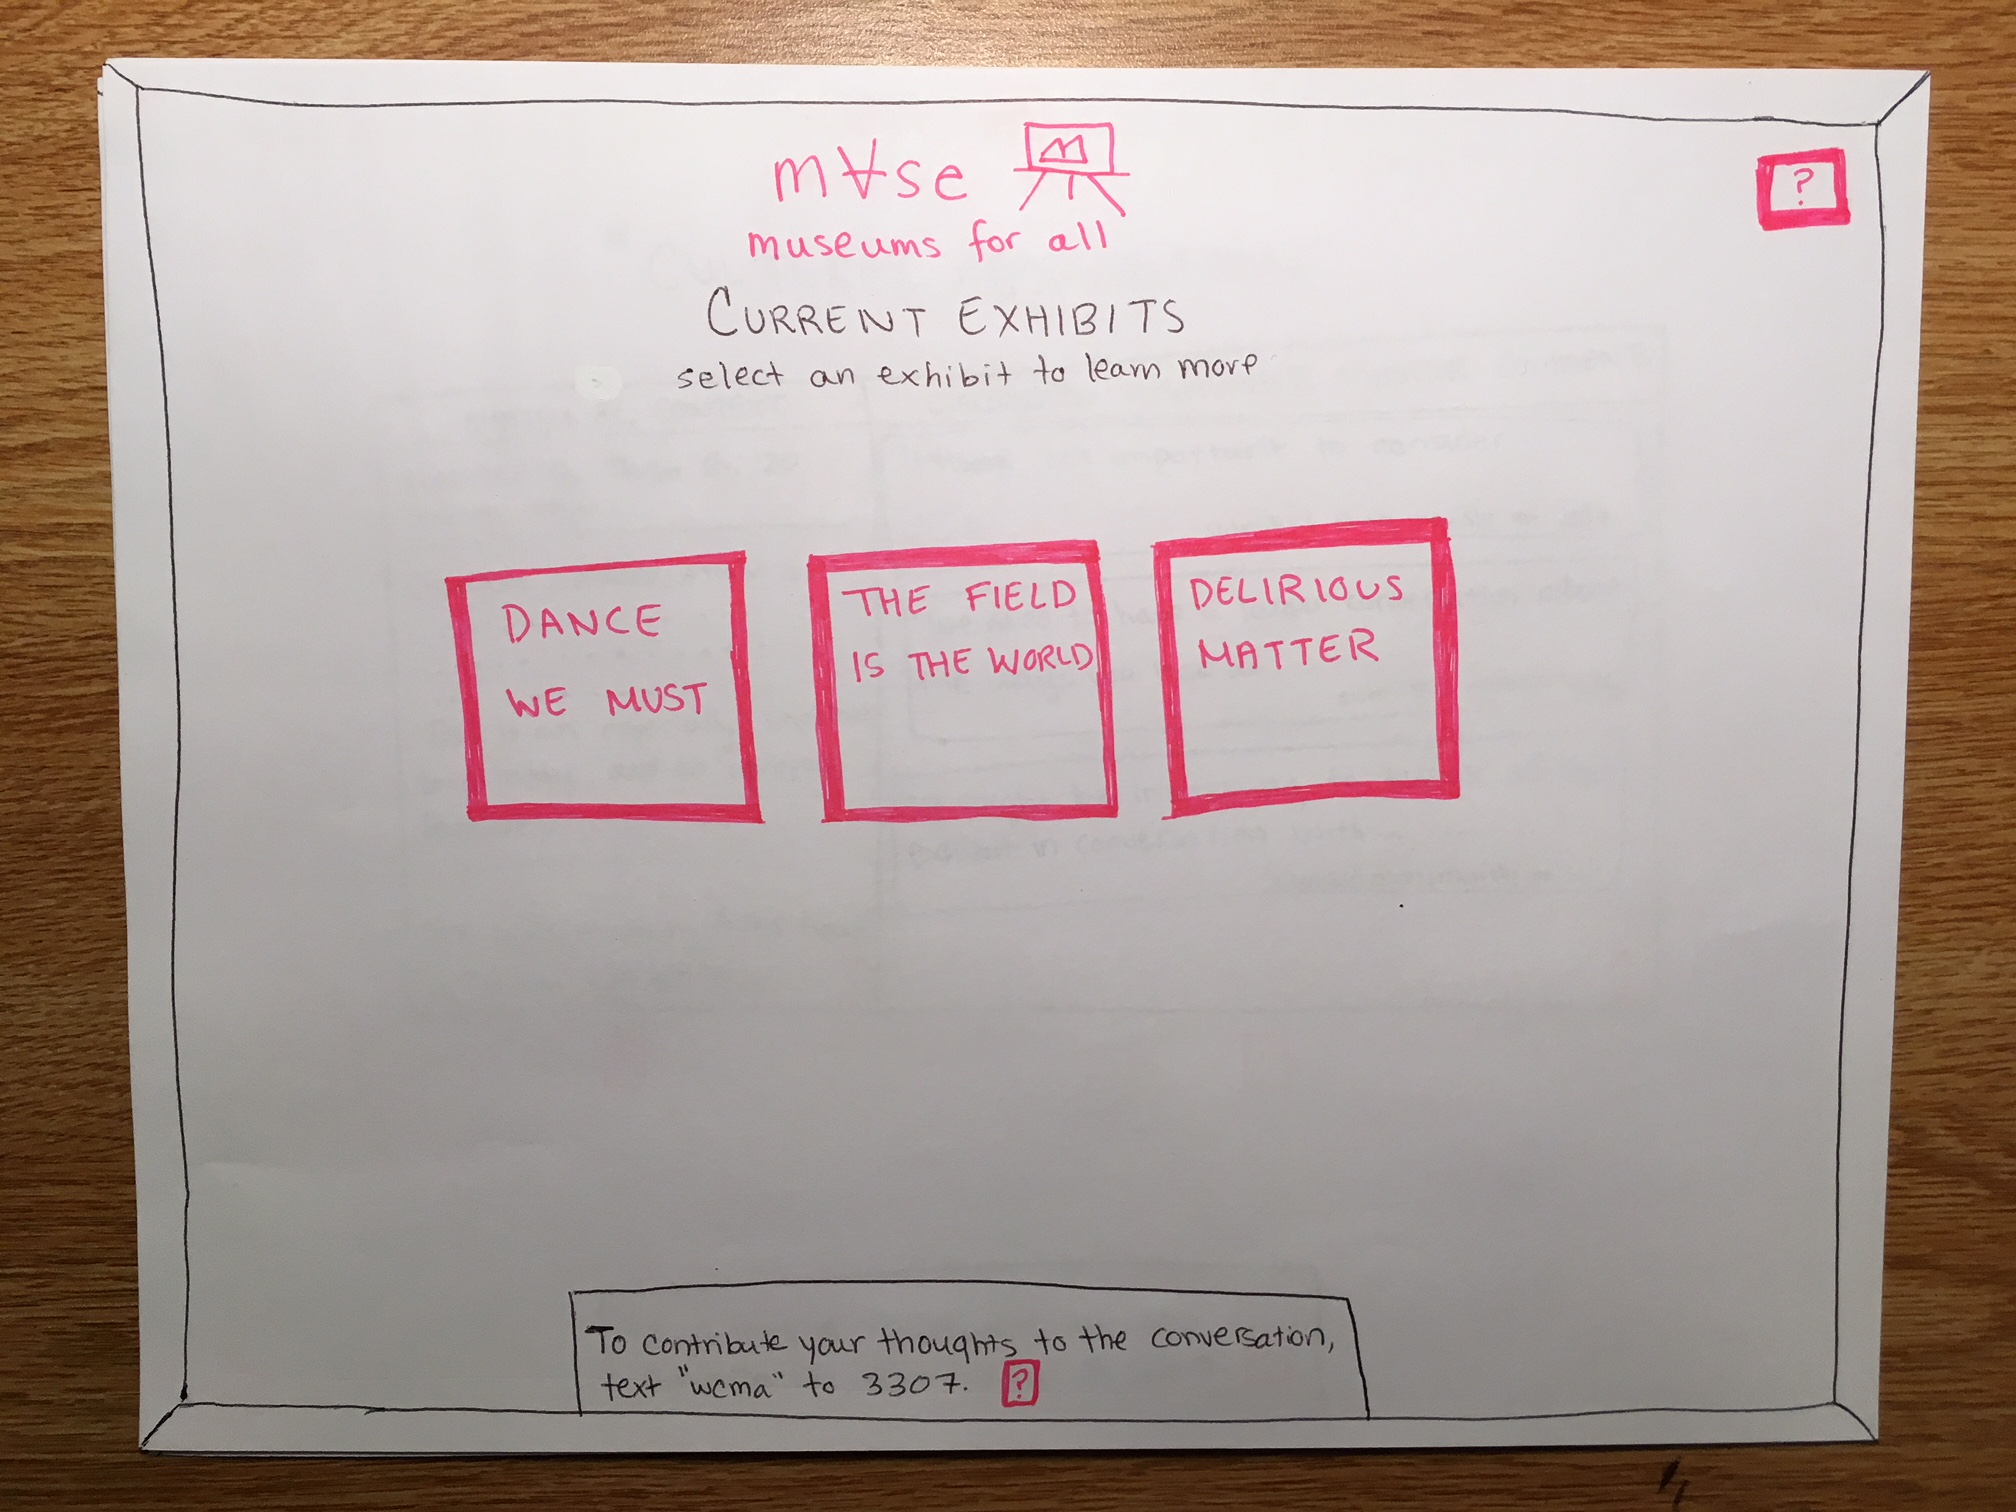 m∀se
museums for all
?
CURRENT EXHIBITS
select an exhibit to learn more
DANCE
WE MUST
THE FIELD
IS THE WORLD
DELIRIOUS
MATTER
To contribute your thoughts to the conversation,
text "wcma" to 3307. ?